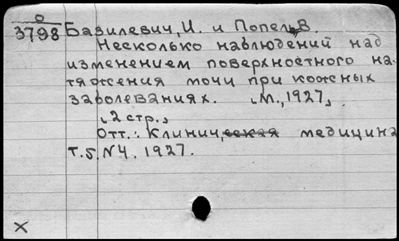 О
3798 Базилевич, И. и Попель, В.
Несколько наблюдений над
изменением поверхностного на-
тяжения мочи при кожных
заболеваниях. М., 1927.
2 стр.
Отт.: Клиническая медицина
т.5. N4. 1927.
X